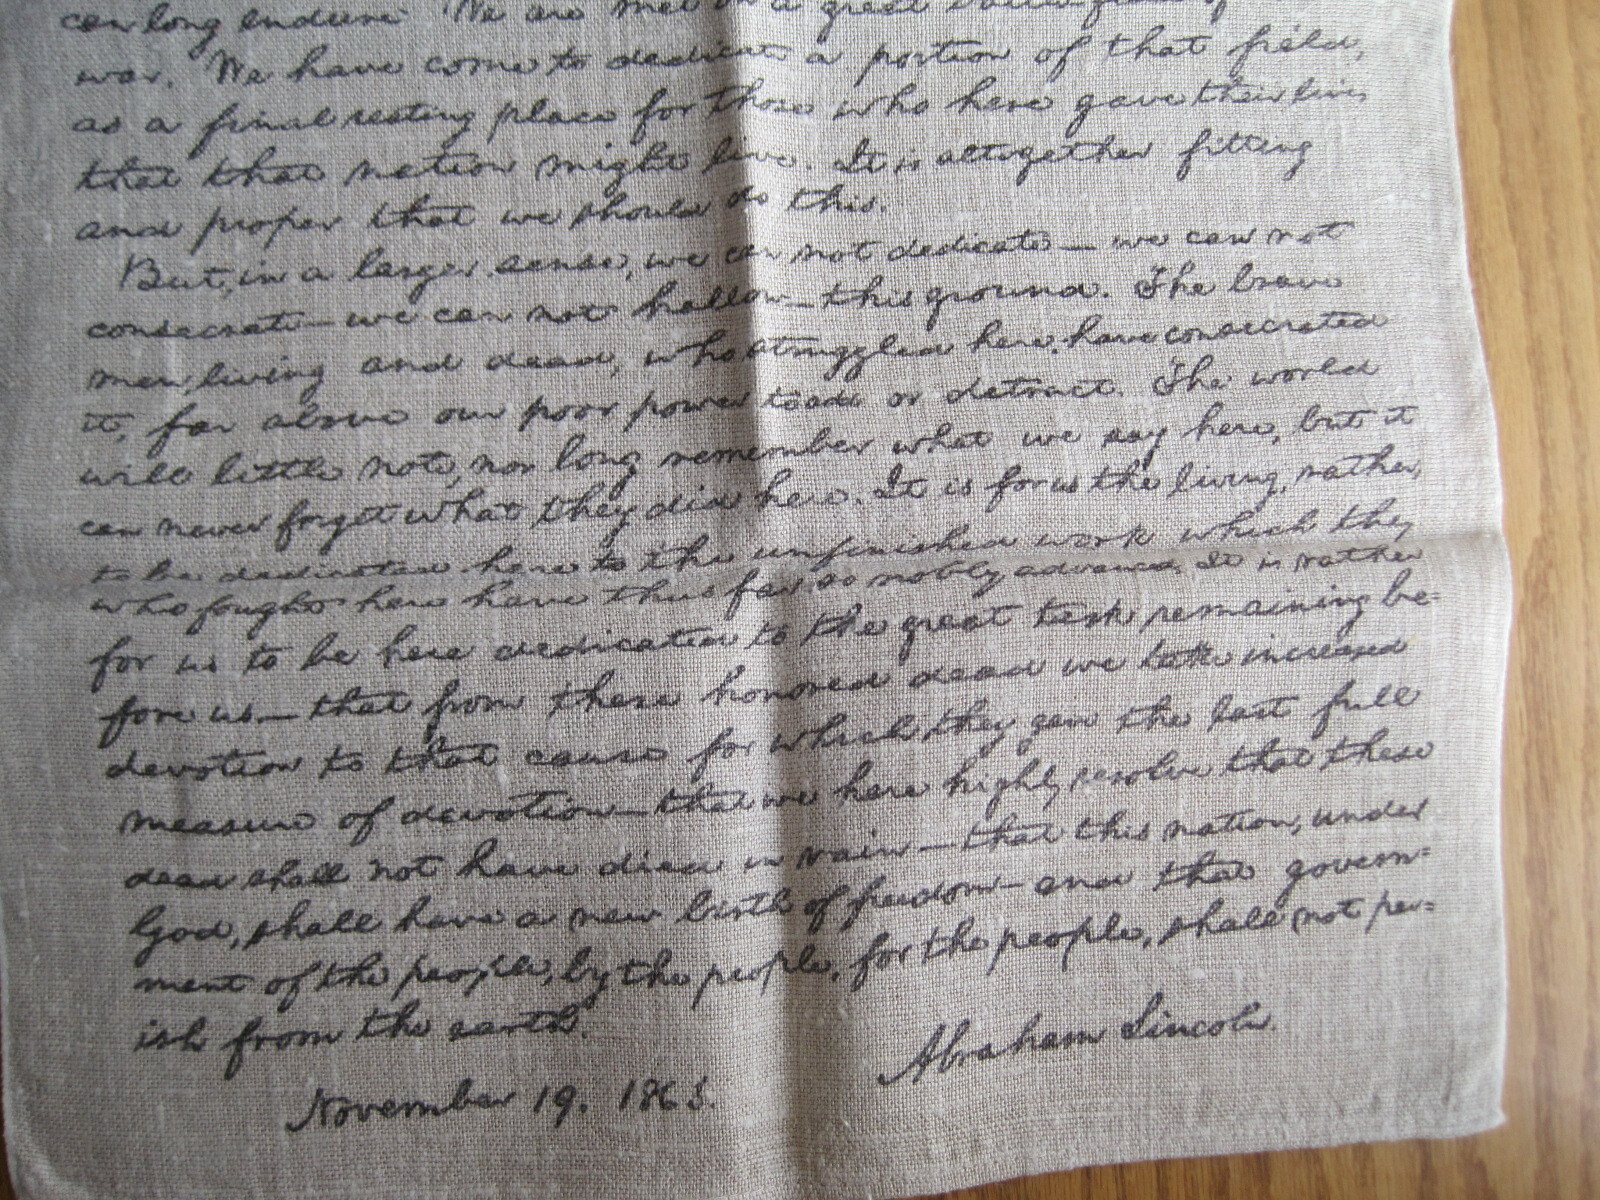 can long endure. We are met on a great battle-field of
war. We have come to dedicate a portion of that field,
as a final resting place for those who here gave their lives
that that nation might live. It is altogether fitting
and proper that we should do this.
But, in a larger sense, we can not dedicate — we can not
consecrate — we can not hallow — this ground. The brave
men, living and dead, who struggled here, have consecrated
it, far above our poor power to add or detract. The world
will little note, nor long remember what we say here, but it
can never forget what they did here. It is for us the living, rather,
to be dedicated here to the unfinished work which they
who fought here have thus far so nobly advanced. It is rather
for us to be here dedicated to the great task remaining be-
fore us — that from these honored dead we take increased
devotion to that cause for which they gave the last full
measure of devotion — that we here highly resolve that these
dead shall not have died in vain — that this nation, under
God, shall have a new birth of freedom — and that govern-
ment of the people, by the people, for the people, shall not per-
ish from the earth.
Abraham Lincoln.
November 19. 1863.